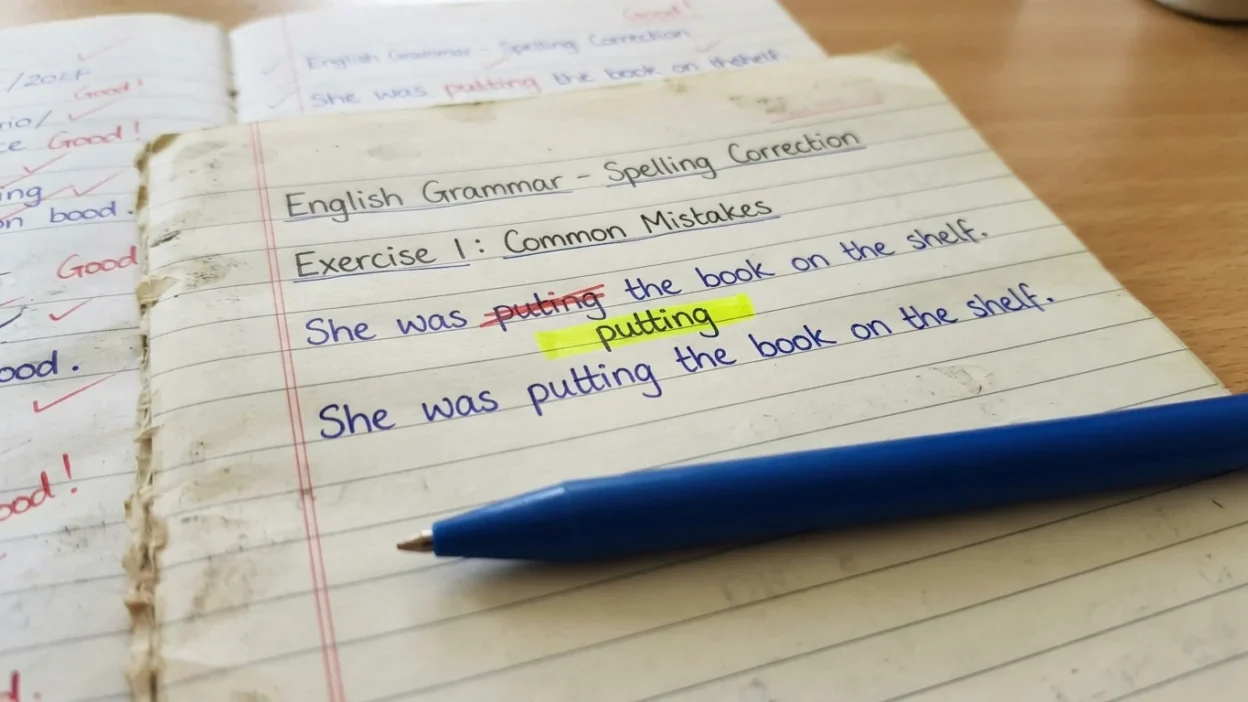 /202
Good!
Good!
ing
on bood.
Good
ood.
ood!
Good!
English Grammar - Spelling Correction
She was putting the book on theshelf.
English Grammar - Spelling Correction
Exercise 1: Common Mistakes
She was puting the book on the shelf.
putting
She was putting the book on the shelf.